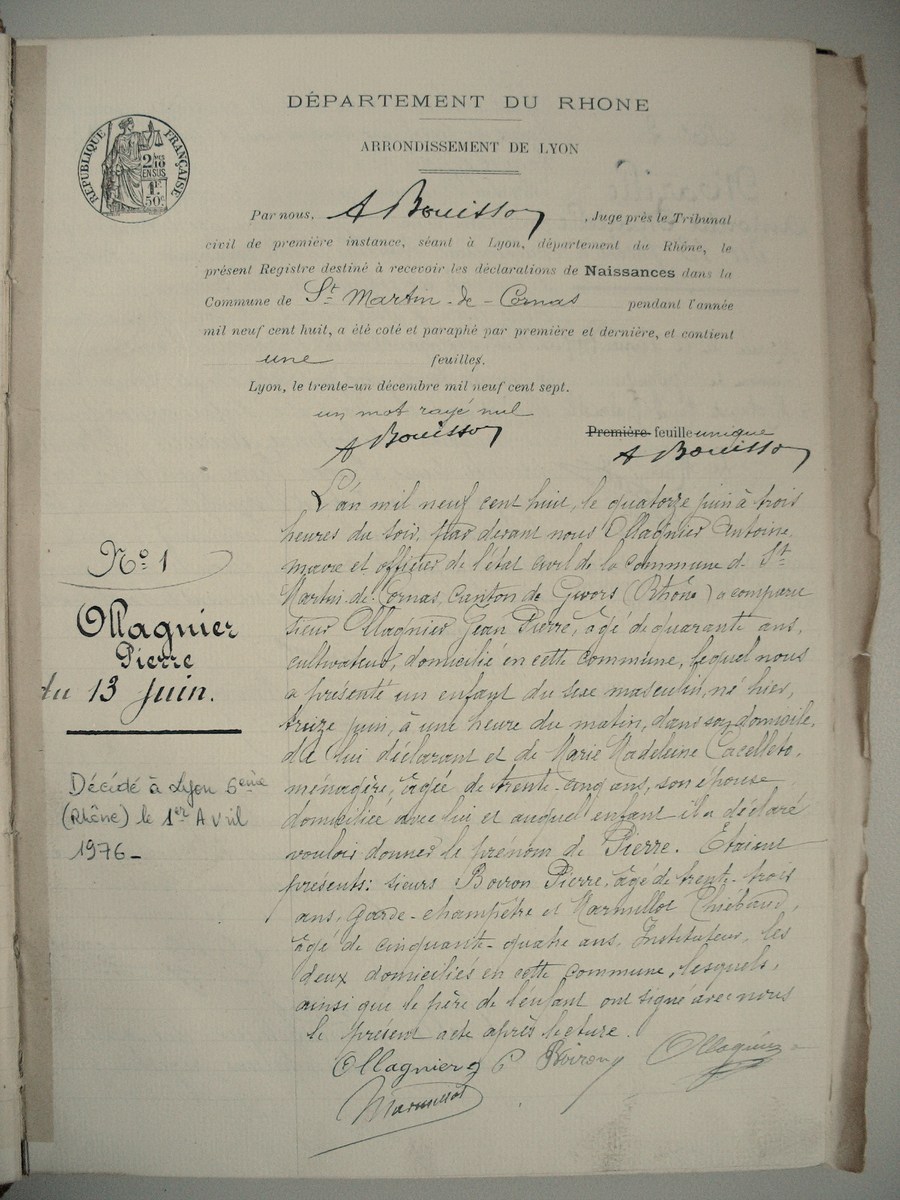 DÉPARTEMENT DU RHONE
ARRONDISSEMENT DE LYON
RÉPUBLIQUE FRANÇAISE
2/10
EN SUS
1F
50c
Par nous, A Bouisson, Juge près le Tribunal
civil de première instance, séant à Lyon, département du Rhône, le
présent Registre destiné à recevoir les déclarations de Naissances dans la
Commune de St Martin-de-Cornas pendant l'année
mil neuf cent huit, a été coté et paraphé par première et dernière, et contient
une feuilles.
Lyon, le trente-un décembre mil neuf cent sept.
un mot rayé nul
A Bouisson
Première feuille unique
A Bouisson
No 1
Ollagnier
Pierre
du 13 Juin.
Décédé à Lyon 6ème
(Rhône) le 1er Avril
1976-
L'an mil neuf cent huit, le quatorze juin à trois
heures du soir, par devant nous Ollagnier Antoine
maire et officier de l'état civil de la commune de St
Martin-de-Cornas, canton de Givors (Rhône) a comparu
sieur Ollagnier Jean Pierre, âgé de quarante ans,
cultivateur, domicilié en cette commune, lequel nous
a présenté un enfant du sexe masculin, né hier,
treize juin, à une heure du matin, dans son domicile,
de lui déclarant et de Marie Madeleine
ménagère, âgée de trente-cinq ans, son épouse
domiciliée avec lui et auquel enfant il a déclaré
vouloir donner le prénom de Pierre. Etaient
présents: sieurs Boiron Pierre, âgé de trente-trois
ans, garde-champêtre et Marmillot Thiébaud,
âgé de cinquante-quatre ans, Instituteur, les
deux domiciliés en cette commune, lesquels,
ainsi que le père de l'enfant ont signé avec nous
le présent acte après lecture.
Ollagnier P Boiron Ollagnier
Marmillot